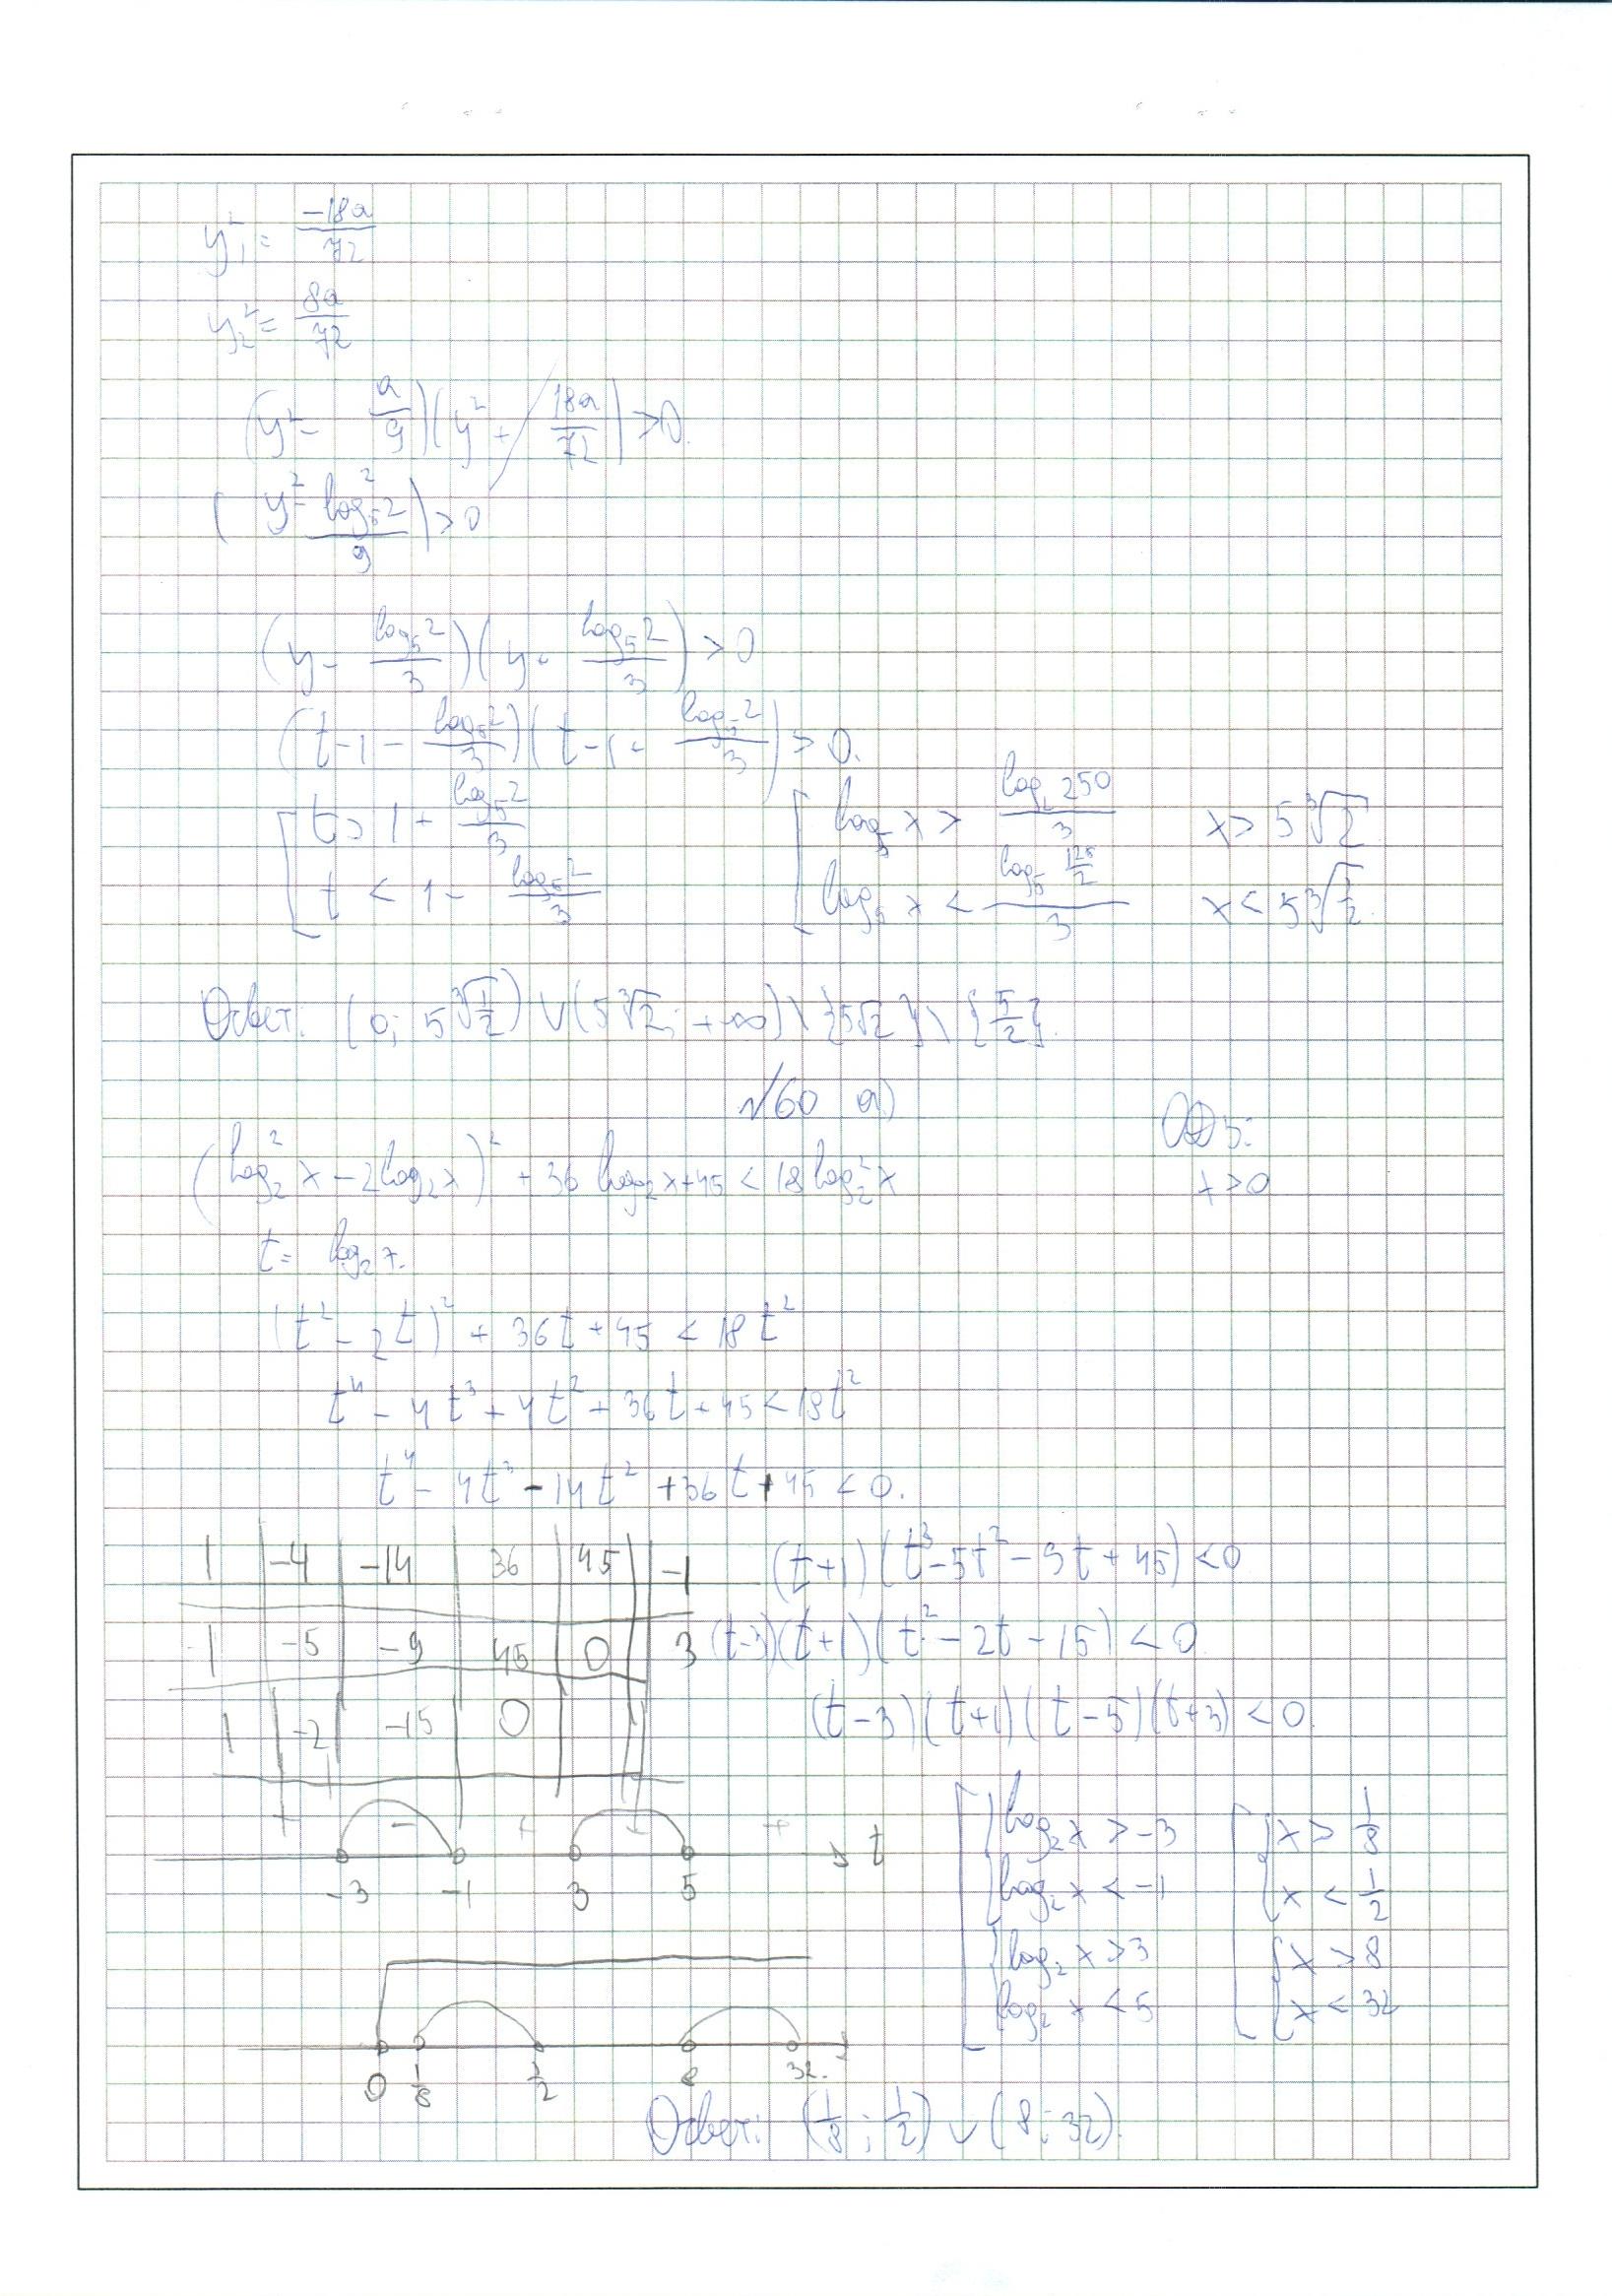 y₁² = −18a/72
y₂² = 8a/72
(y² − a/9)(y² + 18a/72) > 0.
(y² − log₅²2/9) > 0
(y − log₅2/3)(y + log₅2/3) > 0
(t−1 − log₅2/3)(t−1 + log₅2/3) > 0.
[ t > 1 + log₅2/3 [ log₅x > log₅250/3 x > 5∛2
t < 1 − log₅2/3 log₅x < log₅(125/2)/3 x < 5∛(1/2).
Ответ: (0; 5∛(1/2)) ∪ (5∛2; +∞) \ {5√2} \ {5/2}.
№60 а)
ОДЗ:
(log₂²x − 2log₂x)² + 36 log₂x + 45 < 18 log₂²x
x > 0
t = log₂x.
(t² − 2t)² + 36t + 45 < 18t²
t⁴ − 4t³ + 4t² + 36t + 45 < 18t²
t⁴ − 4t³ − 14t² + 36t + 45 < 0.
1 | −4 | −14 | 36 | 45 | −1 (t+1)(t³ − 5t² − 9t + 45) < 0
1 | −5 | −9 | 45 | 0 | 3 (t−3)(t+1)(t² − 2t − 15) < 0
1 | −2 | −15 | 0 (t−3)(t+1)(t−5)(t+3) < 0.
+ − + − + t
−3 −1 3 5
[ { log₂x > −3 [ { x > 1/8
log₂x < −1 x < 1/2
{ log₂x > 3 { x > 8
log₂x < 5 x < 32
0 1/8 1/2 8 32
Ответ: (1/8; 1/2) ∪ (8; 32).